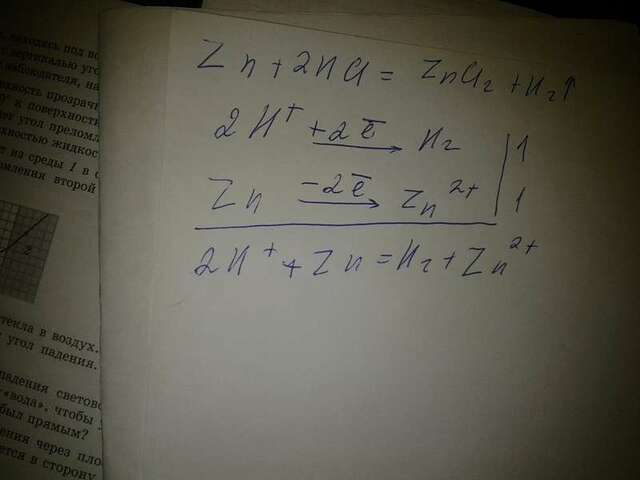 Zn + 2HCl = ZnCl₂ + H₂↑
2H⁺ +2e̅ → H₂ | 1
Zn −2e̅ → Zn²⁺ | 1
2H⁺ + Zn = H₂ + Zn²⁺
находясь под
вертикалью
наблюдателя, на
к поверхности
угол
жидкос
из среды 1 в
второй
2
текла в воздух.
угол падения.
падения светово
«вода», чтобы
был прямым?
ения через пло
ется в сторону